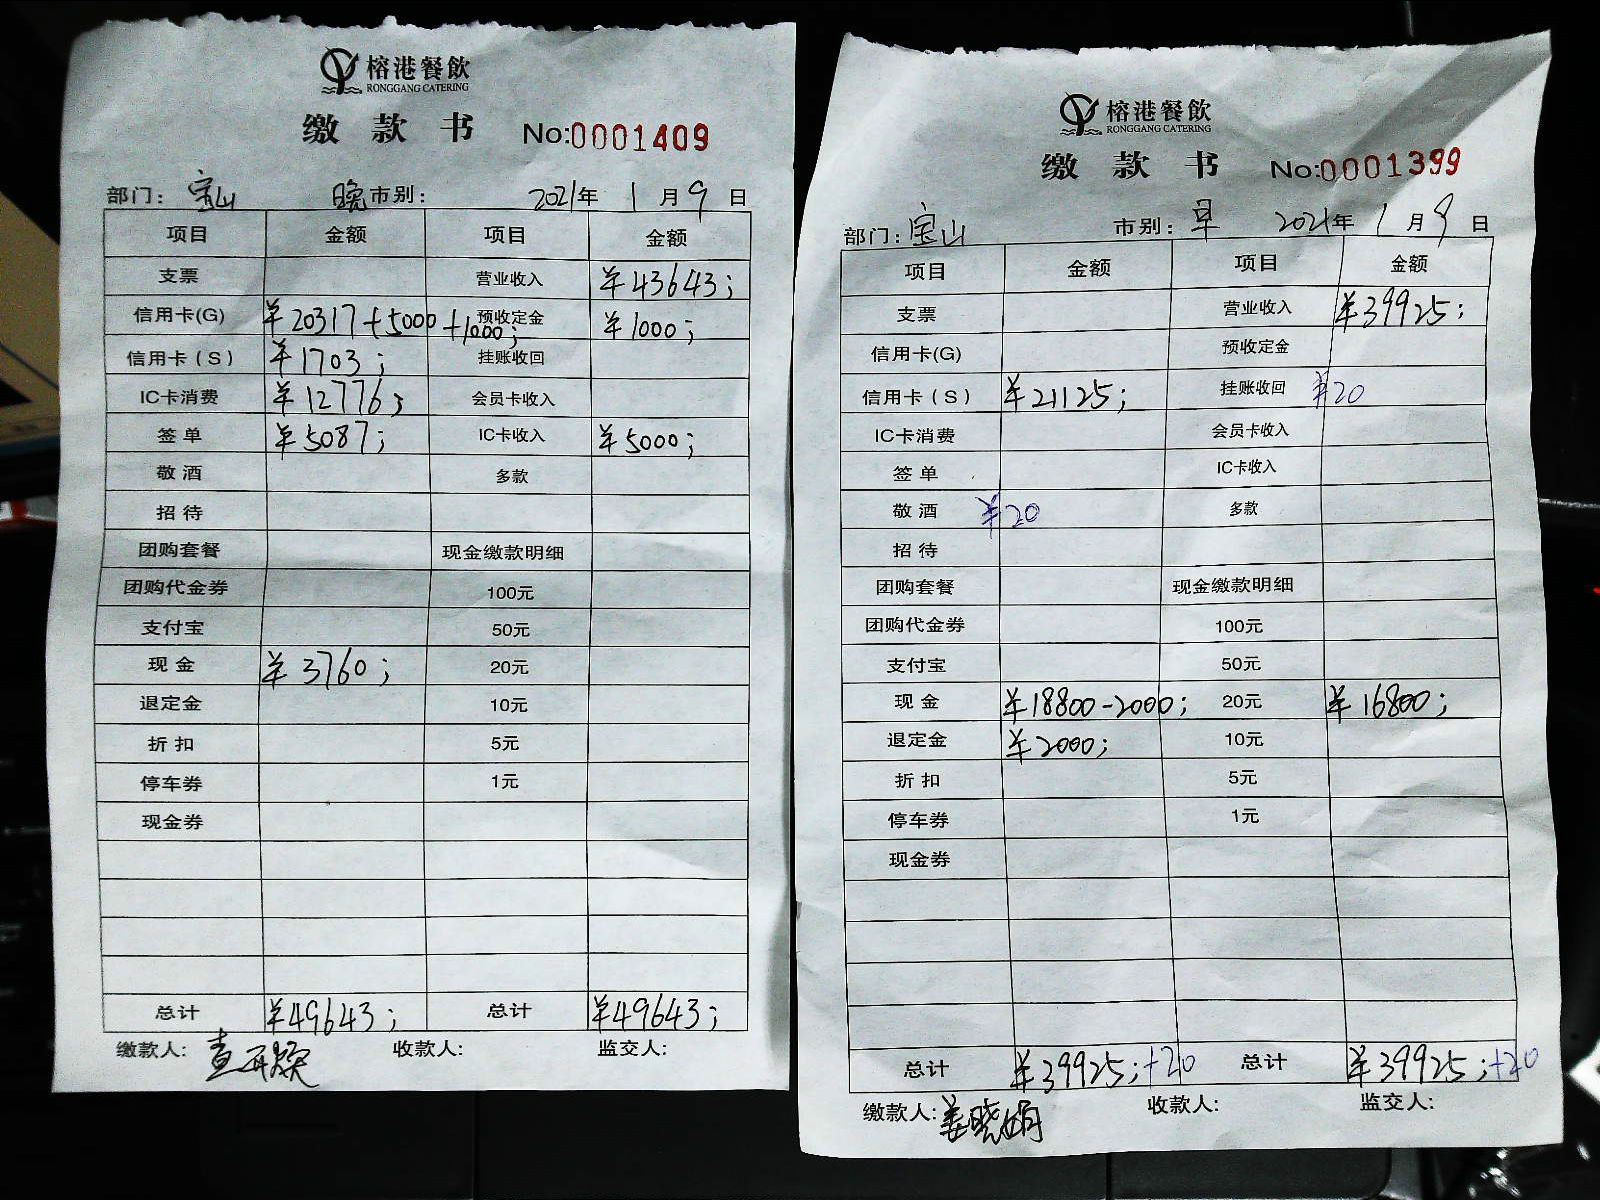 榕港餐飲
RONGGANG CATERING
缴款书 No:0001409
部门: 宝山 晚市别: 2021年 1月 9日
项目 金额 项目 金额
支票 营业收入 ¥43643;
信用卡(G) ¥20317+5000+1000; 预收定金 ¥1000;
信用卡(S) ¥1703; 挂账收回
IC卡消费 ¥12776; 会员卡收入
签单 ¥5087; IC卡收入 ¥5000;
敬酒 多款
招待
团购套餐 现金缴款明细
团购代金券 100元
支付宝 50元
现金 ¥3760; 20元
退定金 10元
折扣 5元
停车券 1元
现金券
总计 ¥49643; 总计 ¥49643;
缴款人: 收款人: 监交人:
榕港餐飲
RONGGANG CATERING
缴款书 No:0001399
部门: 宝山 市别: 早 2021年 1月 9日
项目 金额 项目 金额
支票 营业收入 ¥39925;
信用卡(G) 预收定金
信用卡(S) ¥21125; 挂账收回 ¥20
IC卡消费 会员卡收入
签单 IC卡收入
敬酒 ¥20 多款
招待
团购套餐 现金缴款明细
团购代金券 100元
支付宝 50元
现金 ¥18800-2000; 20元 ¥16800;
退定金 ¥2000; 10元
折扣 5元
停车券 1元
现金券
总计 ¥39925;+20 总计 ¥39925;+20
缴款人: 姜晓娟 收款人: 监交人: